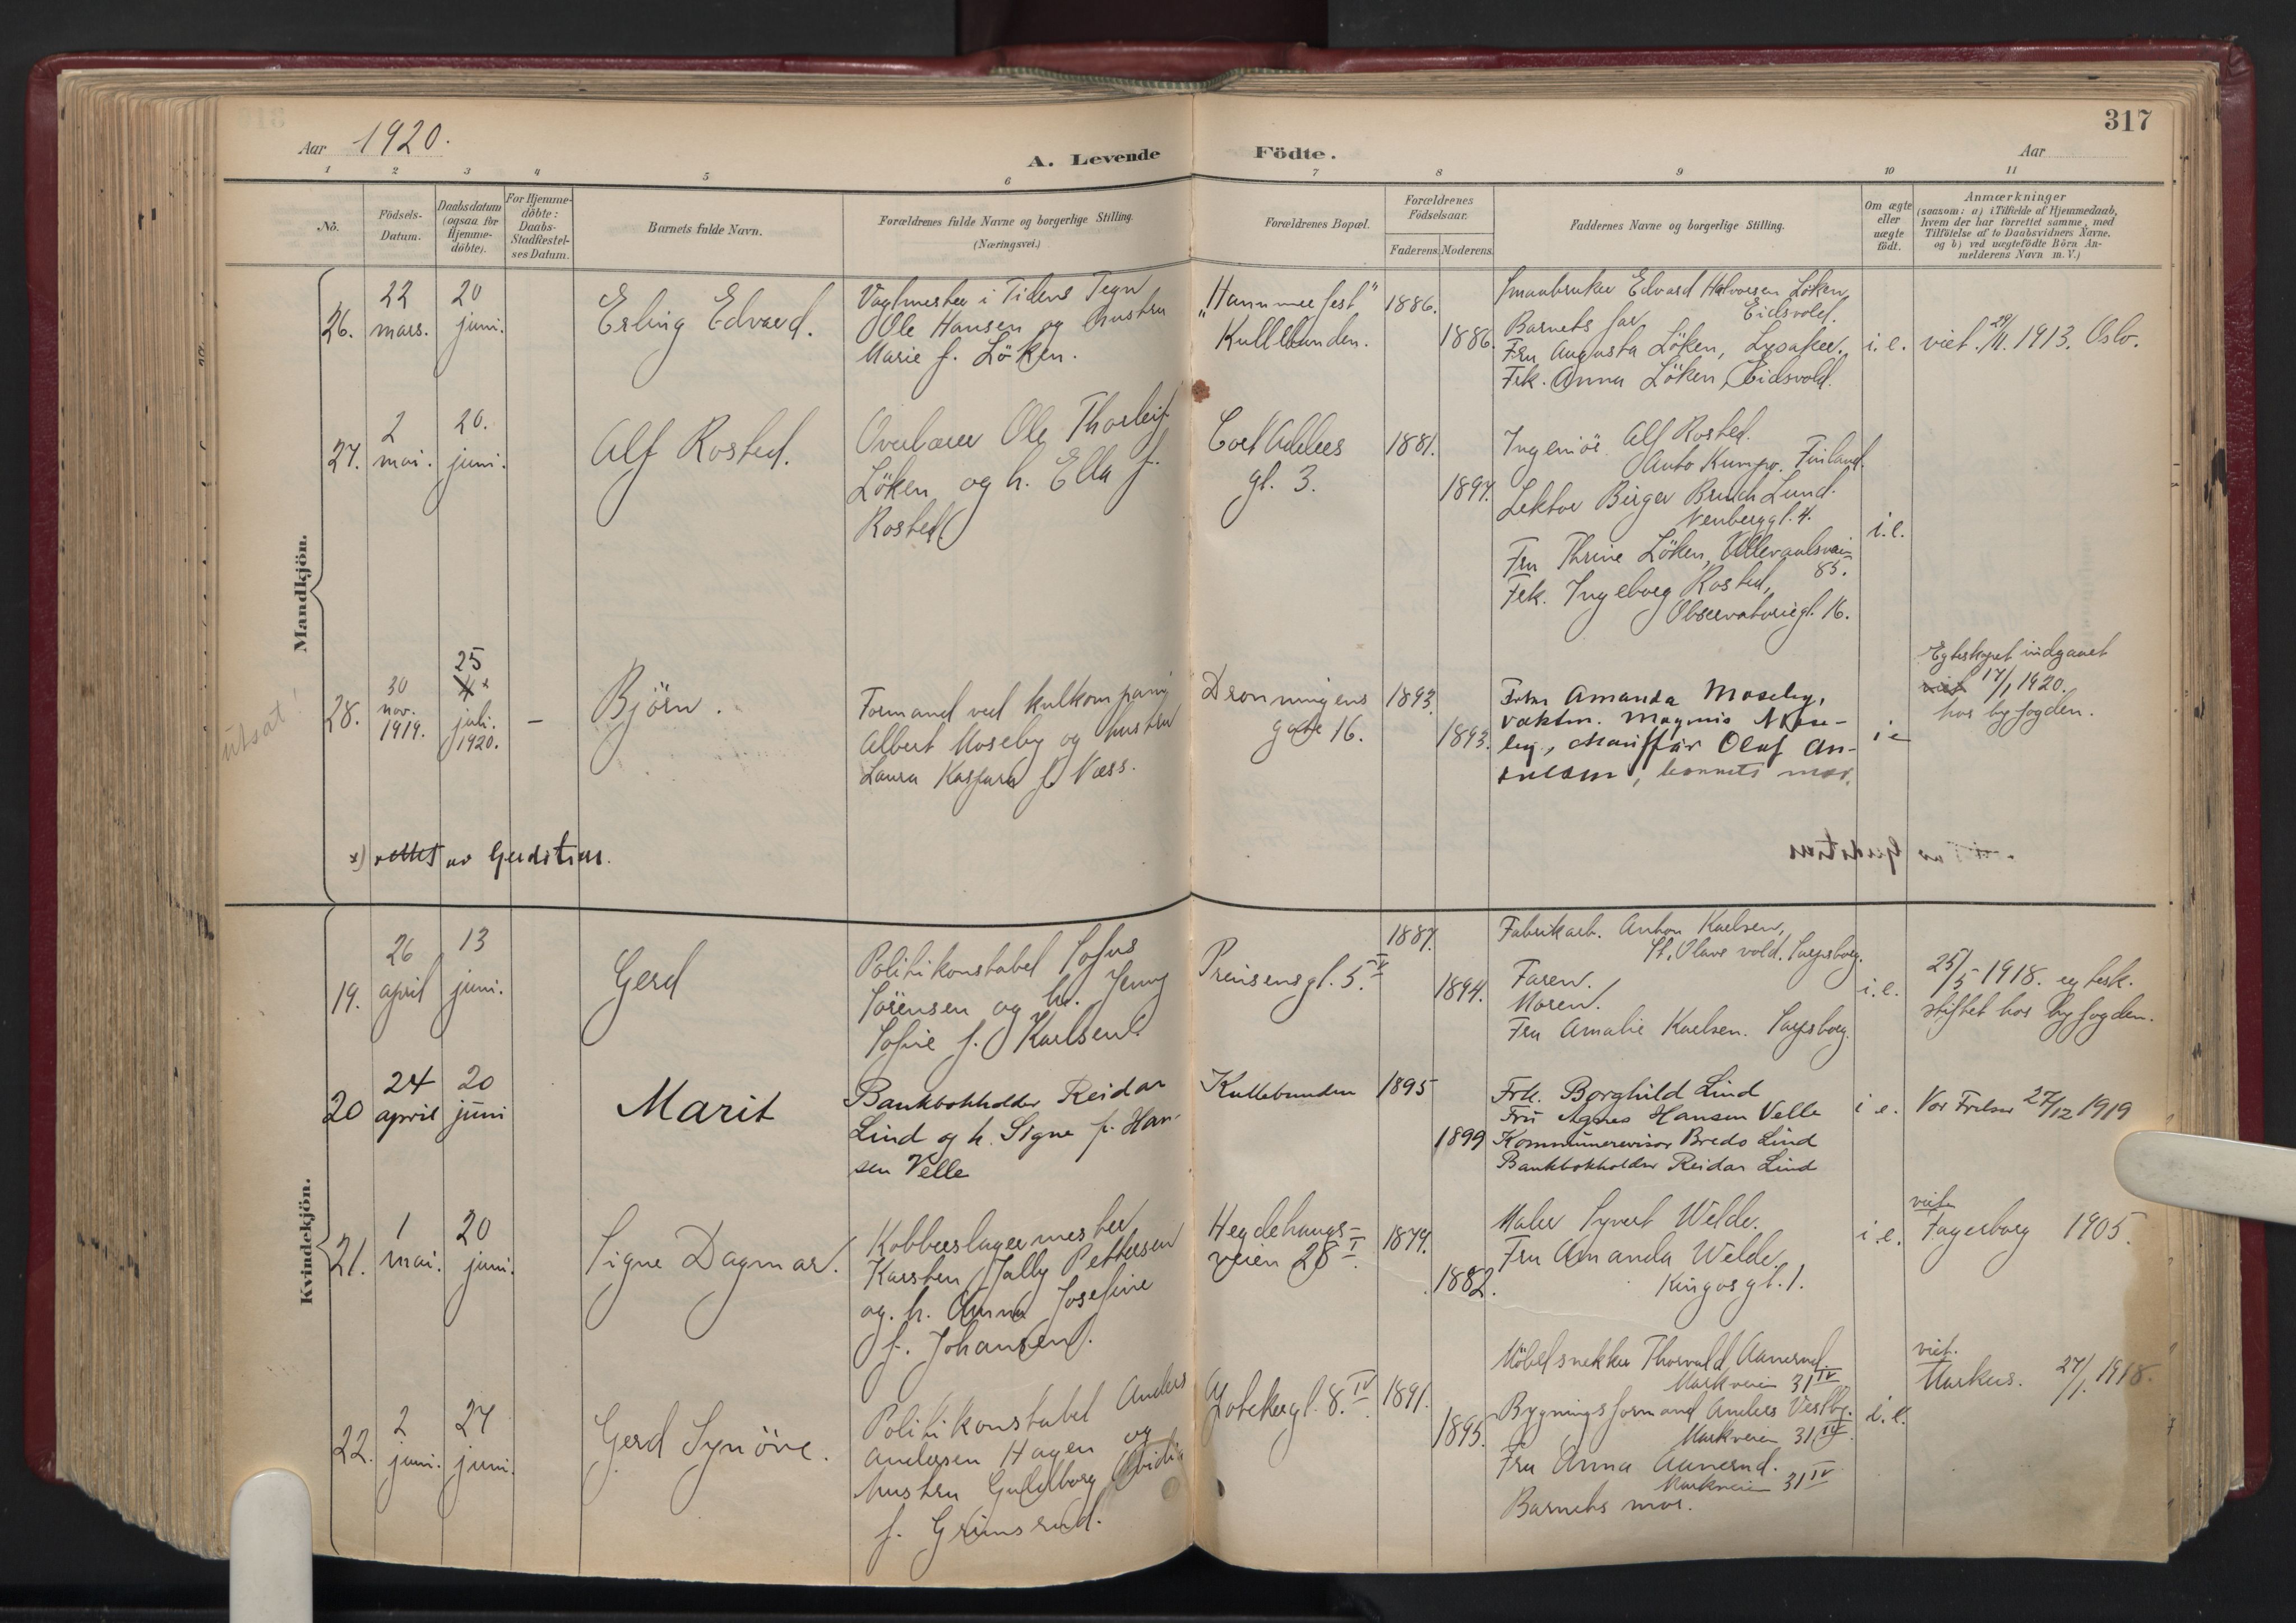 317
Aar 1920.
A. Levende Födte.
Aar
1 2 3 4 5 6 7 8 9 10 11
No.
Födsels-
Datum.
Daabsdatum
(ogsaa for
Hjemme-
döbte).
For Hjemme-
döbte:
Daabs-
Stadfæstel-
ses Datum.
Barnets fulde Navn.
Forældrenes fulde Navne og borgerlige Stilling.
(Næringsvei.)
Forældrenes Bopæl.
Forældrenes
Födselsaar.
Faderens. Moderens.
Faddernes Navne og borgerlige Stilling.
Om ægte
eller
uægte
födt.
Anmærkninger
(saasom: a) i Tilfælde af Hjemmedaab,
hvem der har forrettet samme, med
Tilföielse af to Daabsvidners Navne.
og b) ved uægtefödte Börn An-
melderens Navn m. V.)
Mandkjön.
26.
22
mars.
20
juni.
Erling Edvard.
Vagtmester i Tidens Tegn
Ole Hansen og hustru
Marie f. Löken.
"Hammerfest"
Kullebunden.
1886.
1886.
Smaabruker Edvard Halvorsen Löken,
Eidsvold.
Barnets far
Fru Augusta Löken, Lysaker.
Frk. Anna Löken, Eidsvold.
i. e.
viet 29/11. 1913. Oslo.
27.
2
mai.
20.
juni.
Alf Rosted.
Overlærer Ole Thorleif
Löken og h. Ella f.
Rosted
Cort Adelers
gt. 3.
1881.
1894.
Ingeniör Alf Rosted.
Finland.
Lektor Birger Bruch Lund.
Neuberggt. 4.
Fru Thrine Löken, Ullevaalsvei
85.
Frk. Ingeborg Rosted,
Observatoriegt. 16.
i. e.
utsat!
28.
30
nov.
1919.
25
4 x
juli.
1920.
–
Björn.
Formand ved kulkompani
Albert Moseby og hustru
Laura Kaspara f. Næss.
Dronningens
gate 16.
1893.
1893.
Fru Amanda Moseby,
vaktm. Magnus Mose-
by, Olaf An-
, barnets mor.
i e
Egteskapet indgaaet
viet 17/1 1920.
hos byfogden.
x) rettet av
Kvindekjön.
19.
26
april
13
juni.
Gerd
Politikonstabel Sofus
Sörensen og h. Jenny
Sofie f. Karlsen.
Prinsensgt. 5. IV
1887.
1894.
Fabrikarb. Anton Karlsen,
St. Olavs vold, Sarpsborg.
Faren.
Moren.
Fru Amalie Karlsen. Sarpsborg.
i. e.
25/5 1918. egtesk.
stiftet hos byfogden.
20
24
april
20
juni
Marit
Bankbokholder Reidar
Lind og h. Signe f. Han-
sen Velle
Kullebunden
1895
1899
Frk. Borghild Lind
Fru Agnes Hansen Velle
Kommunerevisor Bredo Lind
Bankbokholder Reidar Lind
i e.
Vor Frelser 27/12 1919
21.
1
mai.
20
juni.
Signe Dagmar.
Kobberslagermester
Karsten Jally Pettersen
og h. Anna Josefine
f. Johansen.
Hegdehaugs-
veien 28 I.
1879.
1882.
Maler Syvert Welde.
Fru Amanda Welde.
Kingosgt. 1.
i e.
viet
Fagerborg 1905.
22.
2
juni.
27
juni.
Gerd Synöve.
Politikonstabel Anders
Andersen Hagen og
hustru Guldborg Ovidia
f. Grimsrud.
Apotekergt. 8. IV
1891.
1895.
Möbelsnekker Thorvald Aanerud.
Markveien 31 IV
Bygningsformand Anders Vestby.
Markveien 31 IV.
Fru Anna Aanerud.
Markveien 31 IV
Barnets mor.
i. e.
viet.
Markus. 27/1. 1918.